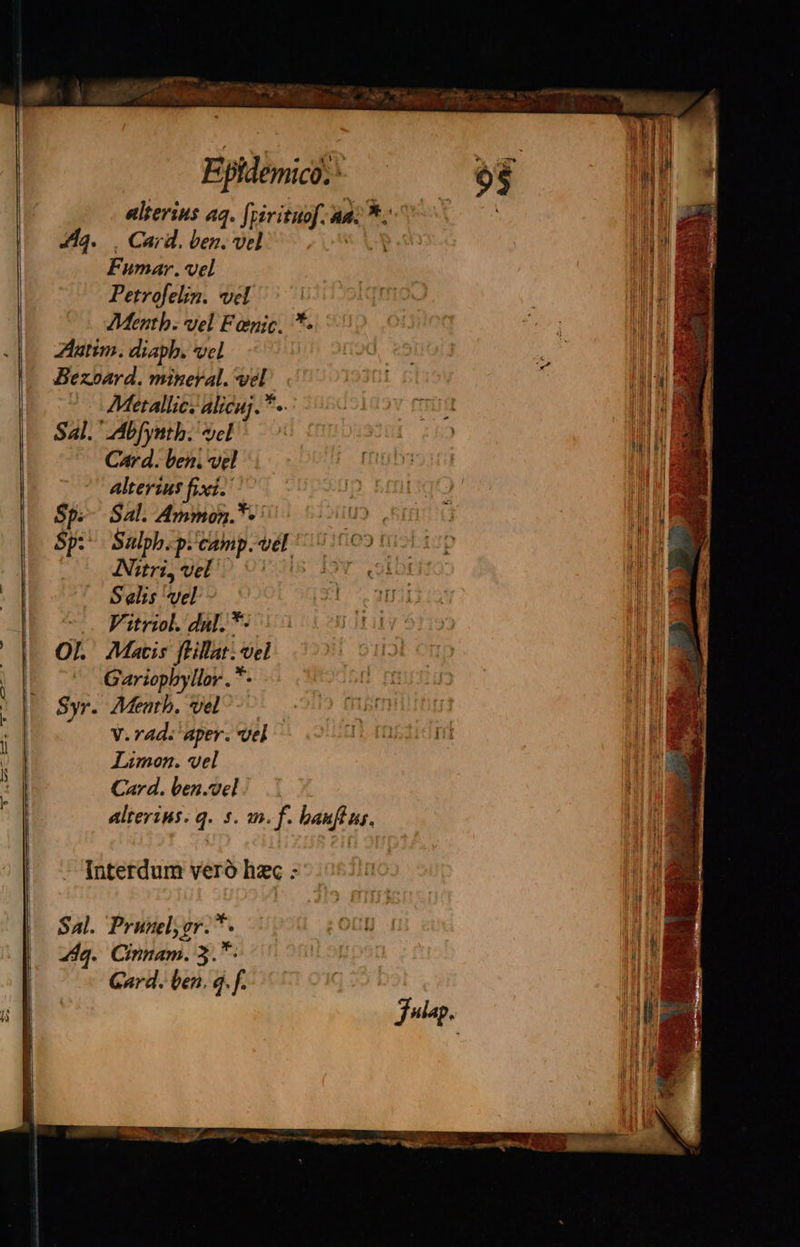 Epidemico. 95
alterius aq. ſpirituoſ. aa. *.
Aq. Card. ben. vel
Fumar. vel
Petroſelin. vel
Menth. vel Fœnic. *.
Antim. diaph. vel
Bezoard. mineral. vel
Metallic. alicuj. *.
Sal. Abſynth. vel
Card. ben. vel
alterius fixi.
Sp. Sal. Ammon. *.
Sp: Sulph. p. camp. vel
Nitri, vel
Salis vel
Vitriol. dul. *.
Ol. Macis ſtillat. vel
Gariophyllor. *.
Syr. Menth. vel
v. rad. aper. vel
Limon. vel
Card. ben. vel
alterius. q. s. m. f. hauſtus.
Interdum verò hæc :
Sal. Prunel, gr. *.
Aq. Cinnam. ʒ. *.
Card. ben. q. f.
Julap.